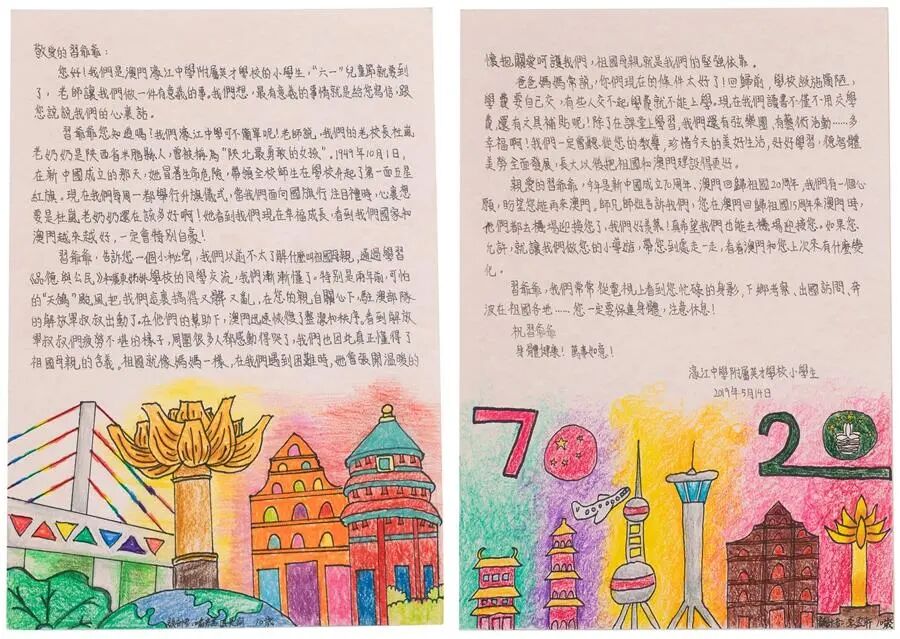 敬愛的習爺爺：
您好！我們是澳門濠江中學附屬英才學校的小學生，“六一”兒童節就要到
了，老師讓我們做一件有意義的事。我們想，最有意義的事情就是給您寫信，跟
您說說我們的心裏話。
習爺爺您知道嗎！我們濠江中學可不簡單呢！老師說，我們的老校長杜嵐
老奶奶是陝西省米脂縣人，曾被稱為“陝北最勇敢的女孩”。1949年10月1日，
在新中國成立的那天，她冒着生命危險，帶領全校師生在學校升起了第一面五星
紅旗。現在我們每周一都舉行升旗儀式，當我們面向國旗行注目禮時，心裏想
要是杜嵐老奶奶還在該多好啊！她看到我們現在幸福成長，看到我們國家和
澳門越來越好，一定會特別自豪！
習爺爺，告訴您一個小秘密，我們以前不太了解什麼叫祖國母親，通過學習
《品德與公民》和姊妹學校的同學交流，我們漸漸懂了。特別是兩年前，可怕
的“天鴿”颱風把我們這裏搞得又髒又亂，在您的親自關心下，駐澳部隊
的解放軍叔叔出動了。在他們的幫助下，澳門迅速恢復了整潔和秩序。看到解放
軍叔叔們疲勞不堪的樣子，周圍很多人都感動得哭了，我們也因此真正懂得了
祖國母親的含義。祖國就像媽媽一樣，在我們遇到困難時，她會張開溫暖的
懷抱，關愛呵護我們，祖國母親就是我們的堅強依靠。
爸爸媽媽常說，你們現在的條件太好了！回歸前，學校設施簡陋，
學費要自己交，有些人交不起學費就不能上學。現在我們讀書不僅不用交學
費，還有文具補貼呢！除了在課堂上學習，我們還有弦樂團，有藝術活動……多
幸福啊！我們一定會聽從您的教導，珍惜今天的美好生活，好好學習，德智體
美勞全面發展，長大以後把祖國和澳門建設得更好。
親愛的習爺爺，今年是新中國成立70周年、澳門回歸祖國20周年，我們有一個心
願，盼望您能再來澳門。師兄師姐告訴我們，您在澳門回歸祖國15周年來澳門時，
他們都去機場迎接您了，我們好羨慕！真希望我們也能去機場迎接您。如果您
允許，就讓我們做您的小導遊，帶您到處走一走，看看澳門和您上次來有什麼變
化。
習爺爺，我們常常從電視上看到您忙碌的身影，下鄉考察、出國訪問、奔
波在祖國各地……您一定要保重身體，注意休息！
祝習爺爺
身體健康！萬事如意！
濠江中學附屬英才學校小學生
2019年5月14日
70
20
10歲
10歲